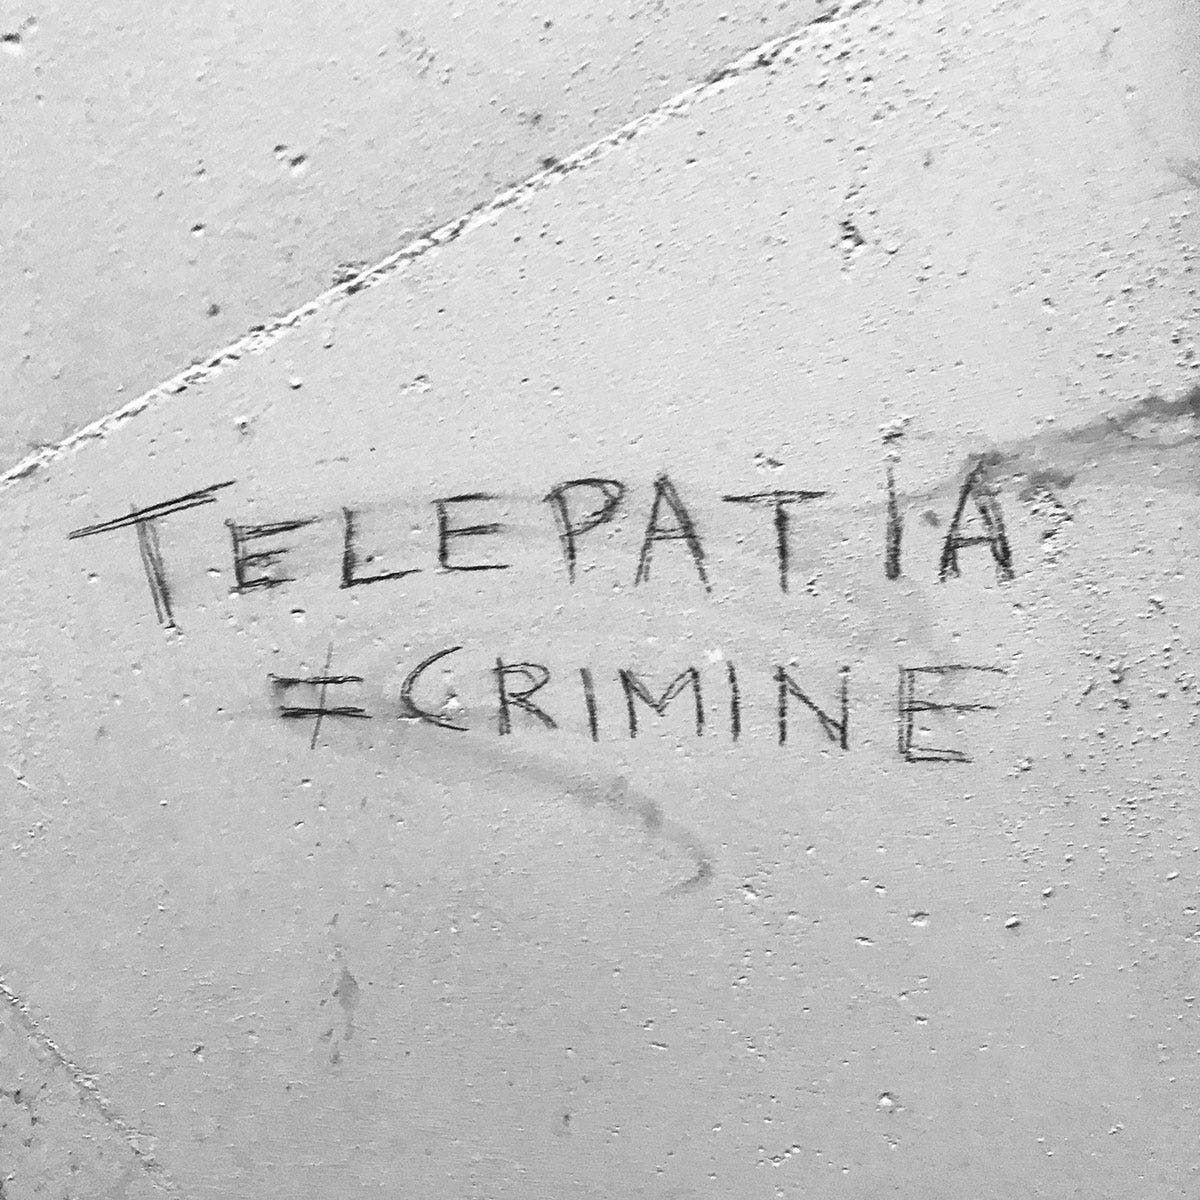 TELEPATIA
≠CRIMINE